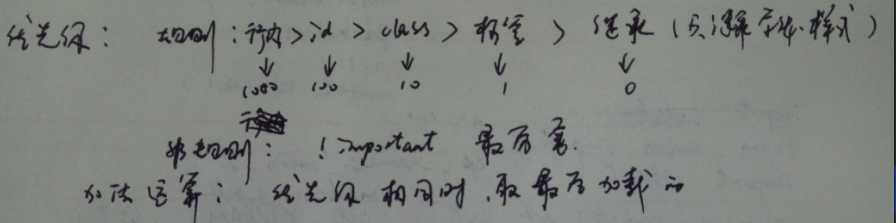 优先级： 大规则：行内 > id > class > 标签 > 继承（只继承字体样式）
↓ ↓ ↓ ↓ ↓
1000 100 10 1 0
规则： !important 最厉害.
加法运算： 优先级相同时，取最后加载的